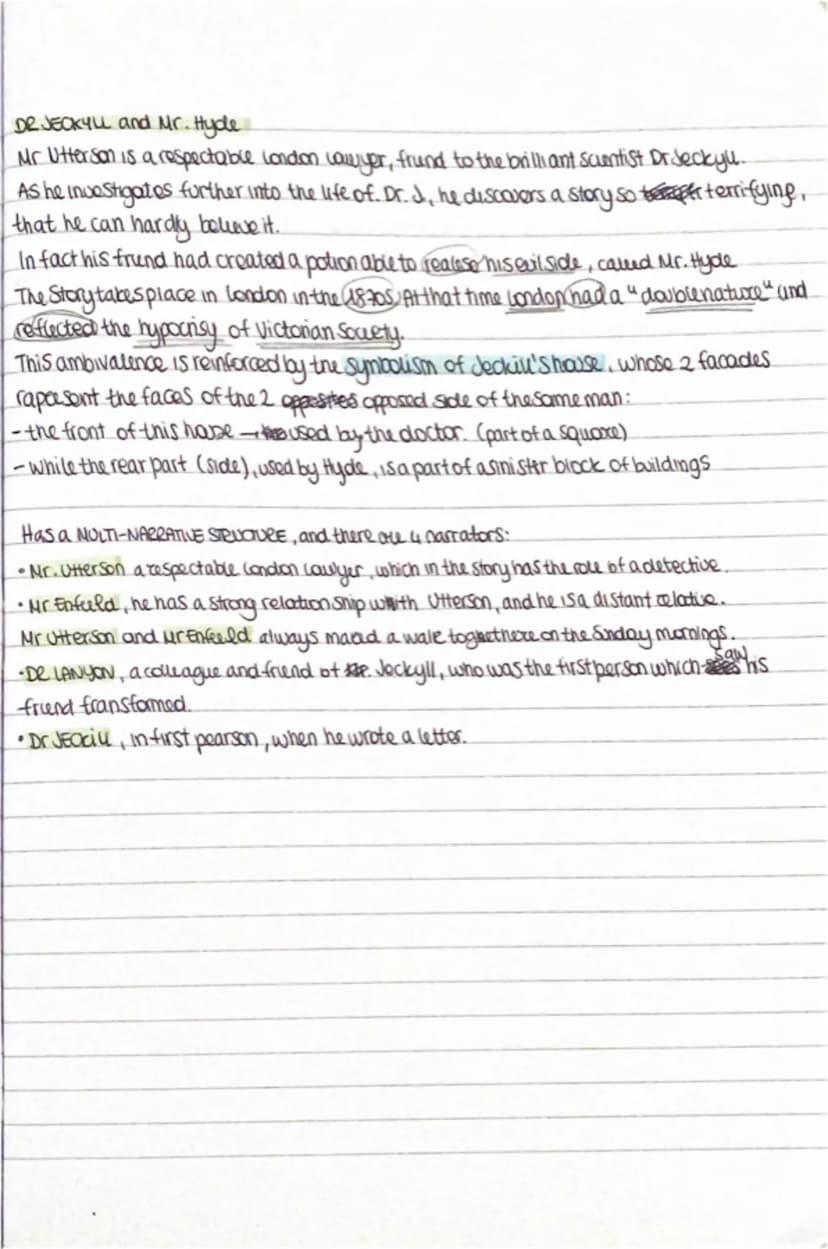 DR JECKYLL and Mr. Hyde
Mr Utterson is a respectable London Lawyer, friend to the brilliant scientist Dr Jeckyll.
As he investigates further into the life of Dr. J, he discovers a story so terrifying,
that he can hardly believe it.
In fact his friend had created a potion able to realese his evil side, called Mr. Hyde
The Story takes place in London in the 1870s. At that time London had a "double nature" and
reflected the hypocrisy of Victorian Society.
This ambivalence is reinforced by the symbolism of Jeckill's house, whose 2 facades
rapresent the faces of the 2 opposites opposed side of the same man:
- the front of this house → used by the doctor. (part of a square)
- while the rear part (side), used by Hyde, is a part of a sinister block of buildings
Has a MULTI-NARRATIVE STRUCTURE, and there are 4 narrators:
• Mr. Utterson a respectable London Lawyer, which in the story has the role of a detective.
• Mr Enfield, he has a strong relationship with Utterson, and he is a distant relative.
Mr Utterson and Mr Enfield always a walk on the Sunday mornings.
• DR LANYON, a colleague and friend of Jeckyll, who was the first person which saw his
friend transformed.
• Dr JECKILL, in first pearson, when he wrote a letter.